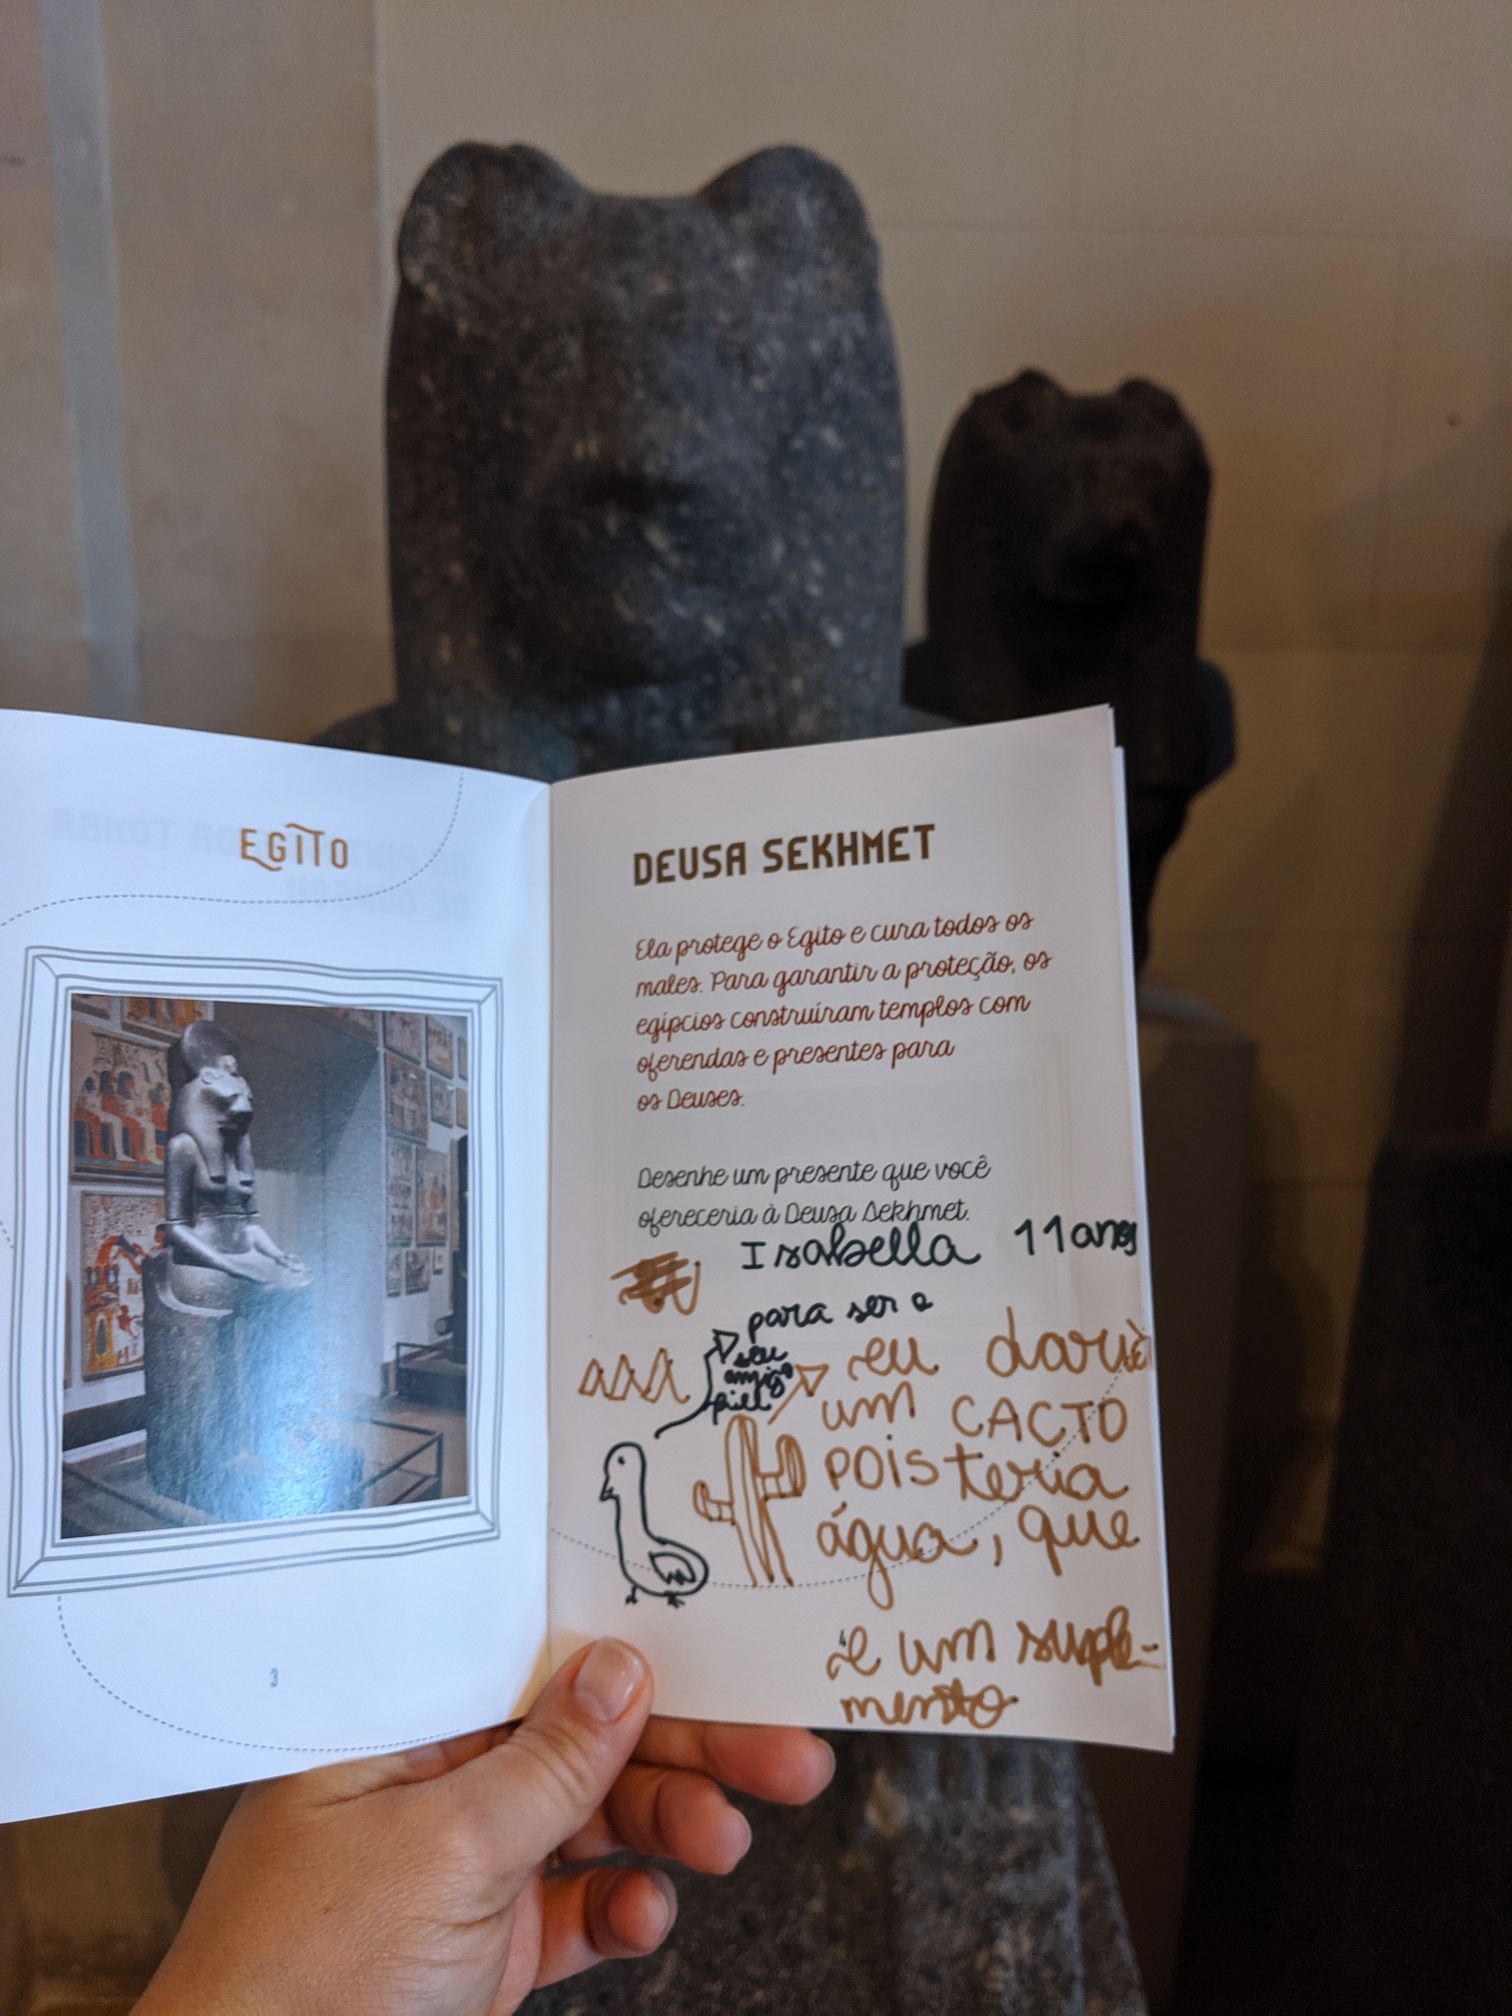 EGITO
3
DEUSA SEKHMET
Ela protege o Egito e cura todos os
males. Para garantir a proteção, os
egípcios construíram templos com
oferendas e presentes para
os Deuses.
Desenhe um presente que você
ofereceria à Deusa Sekhmet.
Isabella 11 anos
para ser o
seu
amigo
fiel
eu daria
um CACTO
POIS teria
água, que
é um suple-
mento